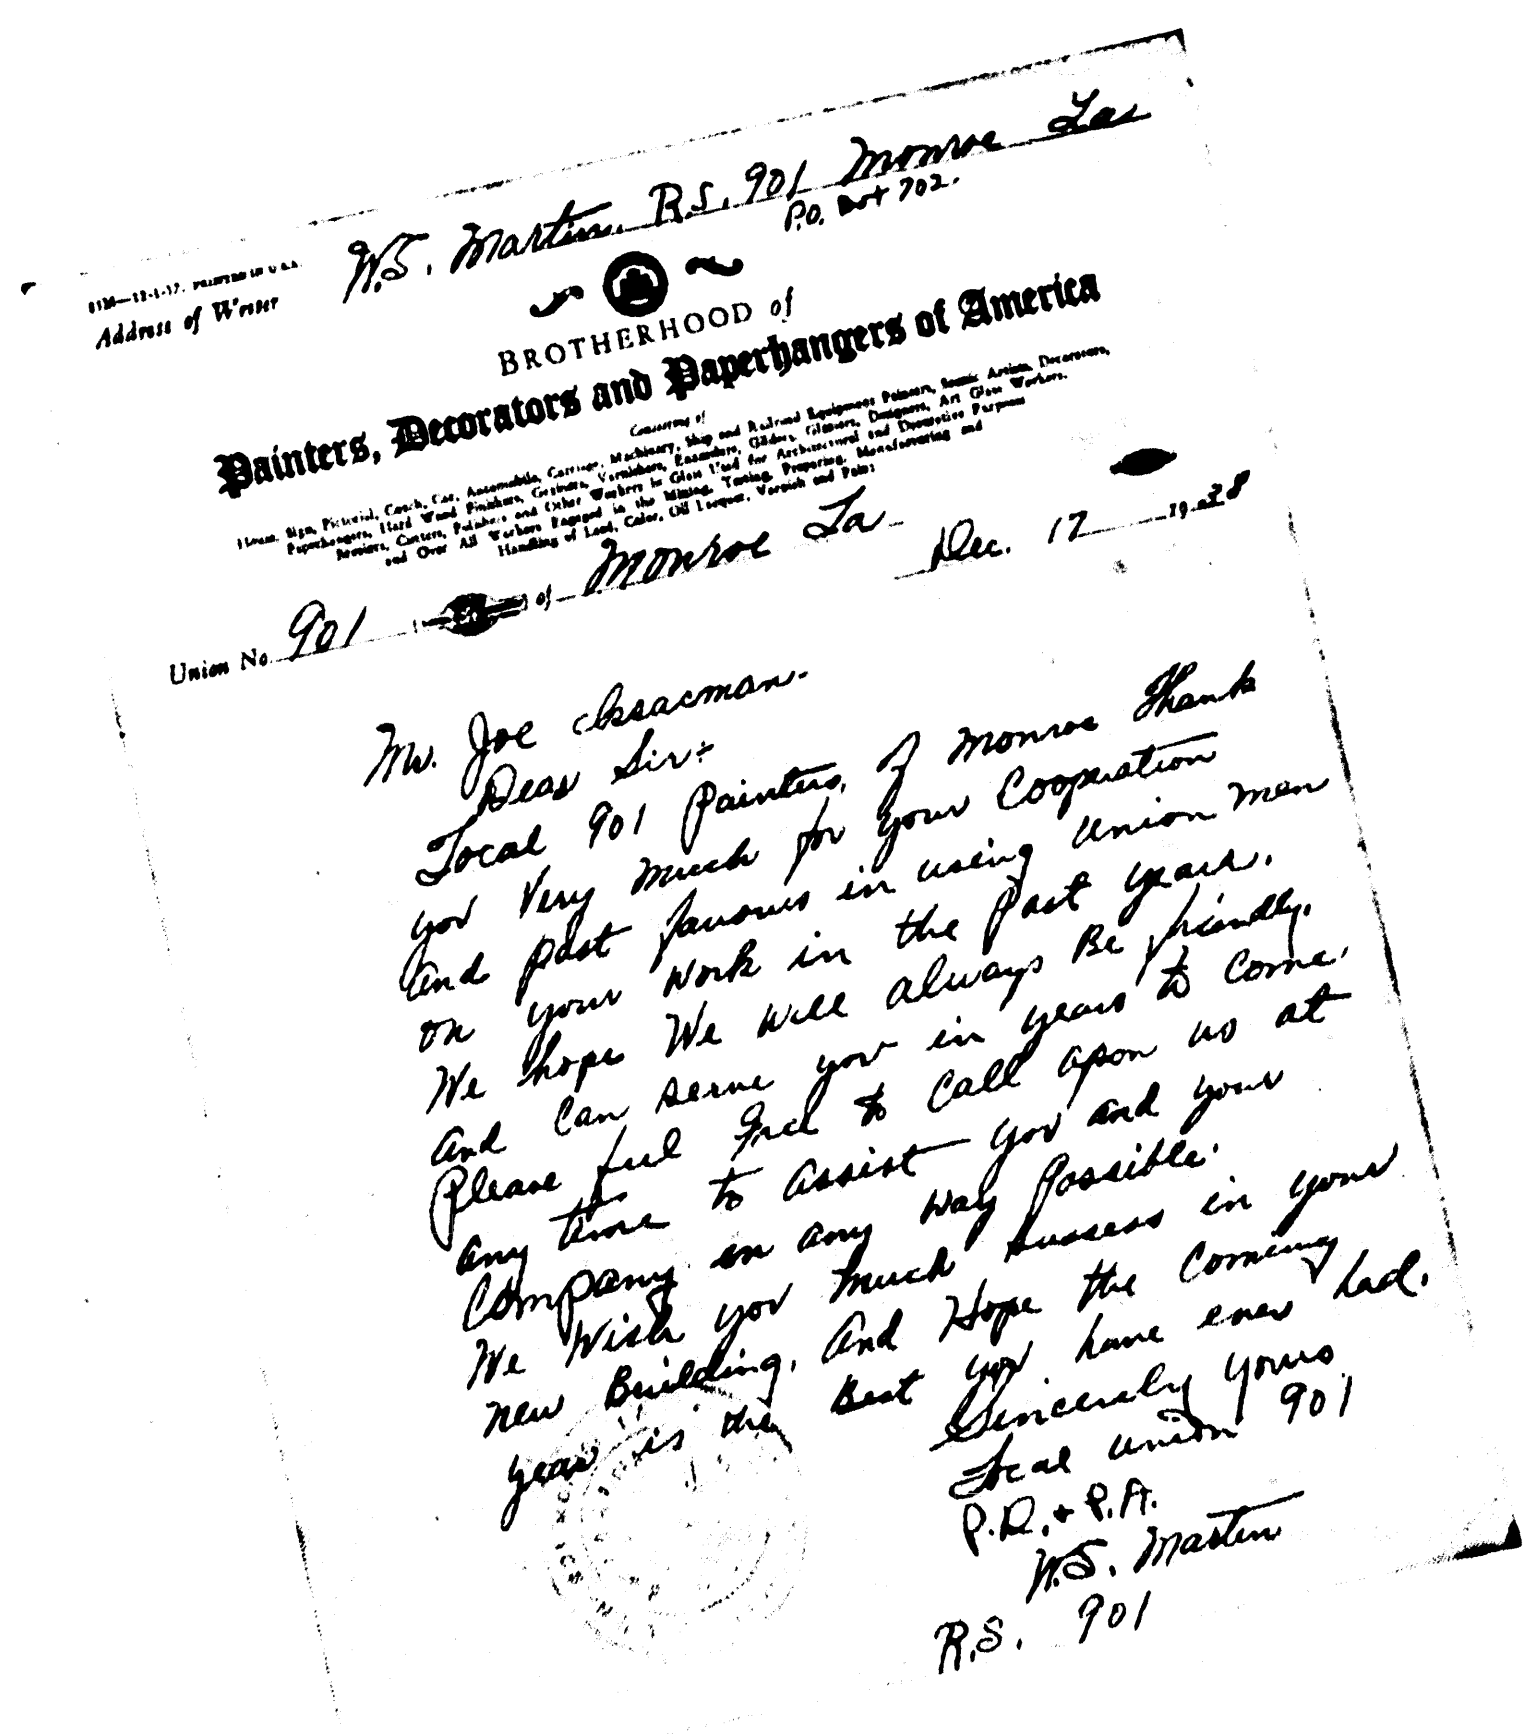 W.S. Martin. R.S. 901 Monroe La
P.O. Box 702.
Address of Writer
BROTHERHOOD of
Painters, Decorators and Paperhangers of America
Consisting of
House, Sign, Pictorial, Coach, Car, Automobile, Carriage, Machinery, Ship and Railroad Equipment Painters, Scenic Artists, Decorators,
Paperhangers, Hard Wood Finishers, Grainers, Varnishers, Enamelers, Gilders, Glaziers, Designers, Art Glass Workers,
Bevelers, Cutters, Polishers and Other Workers in Glass Used for Architectural and Decorative Purposes
and Over All Workers Engaged in the Mixing, Testing, Preparing, Manufacturing and
Handling of Lead, Color, Oil Lacquer, Varnish and Paint
Union No. 901 of Monroe La- Dec. 17 1938
Mr. Joe Issacman.
Dear Sir:
Local 901 Painters, of Monroe Thank
you Very much for your Cooperation
and past favours in using union men
on your work in the past years.
We hope We will always Be friendly.
and can serve you in years to come.
Please feel free to call apon us at
any time to assist you and your
Company in any way possible.
We wish you much sussess in your
new Building, and Hope the coming
year is the Best you have ever had.
Sincerely yours
Local union 901
P.D. & P.A.
W.S. Martin
R.S. 901